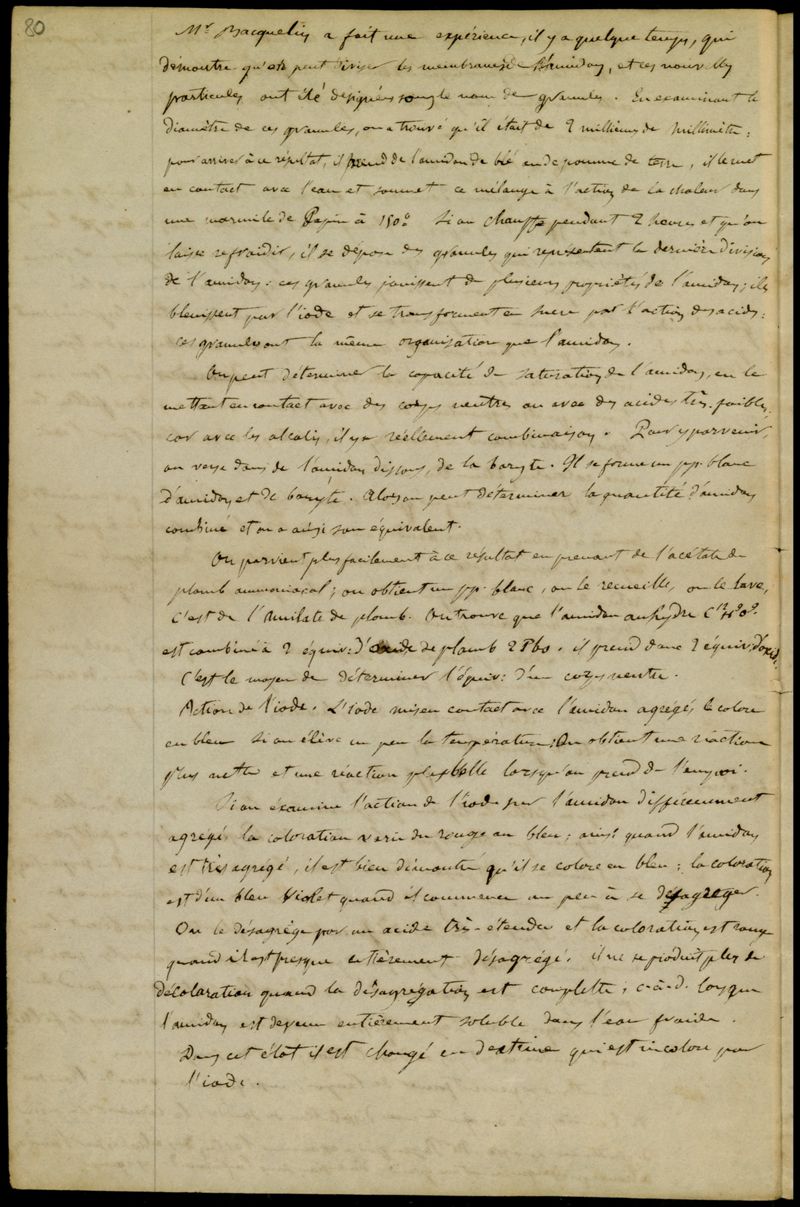 80
Mr Bacquelin a fait une expérience, il y a quelque temps, qui
demontre qu'on peut diviser les membranes de l'amidon, et ces nouvelles
particules ont été designées sous le nom de granules. En examinant le
diamètre de ces granules, on a trouvé qu'il était de 2 millièmes de millimètre;
pour arriver à ce résultat, il prend de l'amidon de blé ou de pomme de terre, il le met
en contact avec l'eau et soumet ce mélange à l'action de la chaleur dans
une marmite de Papin à 150°. Si on chauffe pendant 2 heures et qu'on
laisse refroidir, il se dépose des granules qui représentent la dernière division
de l'amidon: ces granules jouissent de plusieurs propriétés de l'amidon; ils
bleuissent par l'iode et se transforment en sucre par l'action des acides:
ces granules ont la même organisation que l'amidon.
On peut déterminer la capacité de saturation de l'amidon, en le
mettant en contact avec des corps neutres ou avec des acides très-faibles,
car avec les alcalis, il y a réellement combinaison. Pour y parvenir,
on verse dans de l'amidon dissous, de la baryte. Il se forme un pp. blanc
d'amidon et de baryte. Alors on peut déterminer la quantité d'amidon
combiné et on a ainsi son équivalent.
On parvient plus facilement à ce résultat en prenant de l'acétate de
plomb ammoniacal; on obtient un pp. blanc, on le recueille, on le lave,
c'est de l'amilate de plomb. On trouve que l'amidon anhydre C12H9O9
est combiné à 2 équiv: d'oxide de plomb 2PbO. il prend donc 2 équiv. d'oxid.
C'est le moyen de déterminer l'équiv: d'un corps neutre.
Action de l'iode. L'iode mis en contact avec l'amidon agrégé le colore
en bleu si on élève un peu la température; On obtient une réaction
plus nette et une réaction plus belle lorsqu'on prend de l'empoi.
Si on examine l'action de l'iode sur l'amidon différemment
agrégé la coloration varie du rouge au bleu; ainsi quand l'amidon
est très agrégé, il est bien démontré qu'il se colore en bleu; la coloration
est d'un bleu violet quand il commence un peu à se désagréger.
On le désagrège par un acide très-étendu et la coloration est rouge
quand il est presque entièrement désagrégé. il ne se produit plus de
décoloration quand la désagrégation est complette, c-à-d. lorsque
l'amidon est devenu entièrement soluble dans l'eau froide.
Dans cet état il est changé en dextrine qui est incolore par
l'iode.